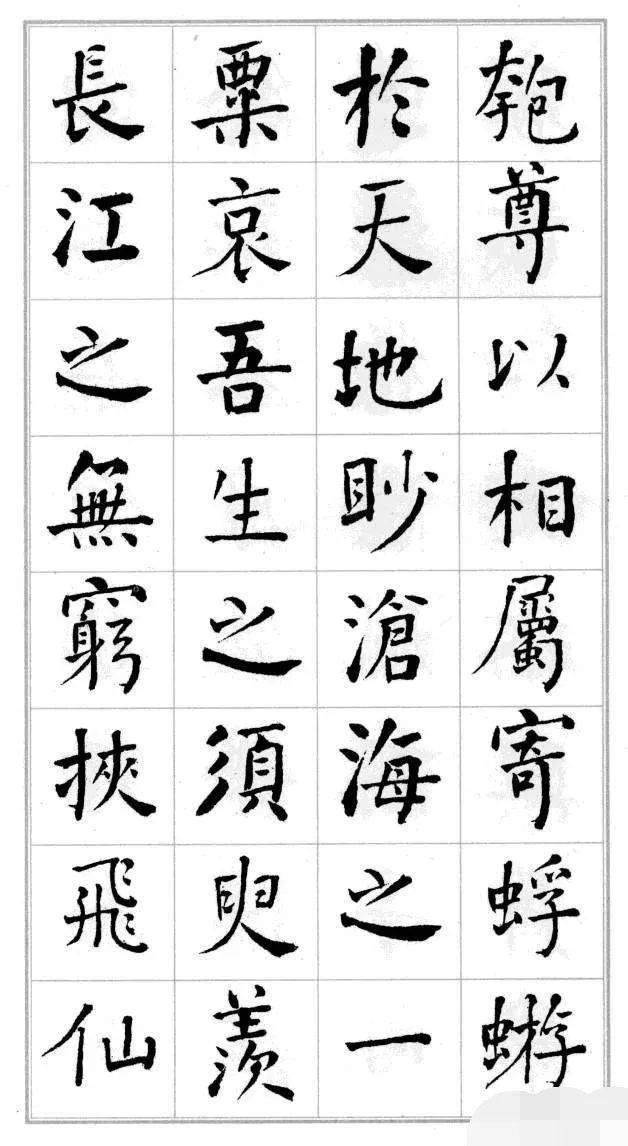 匏尊以相屬寄蜉蝣
於天地眇滄海之一
粟哀吾生之須臾羨
長江之無窮挾飛仙